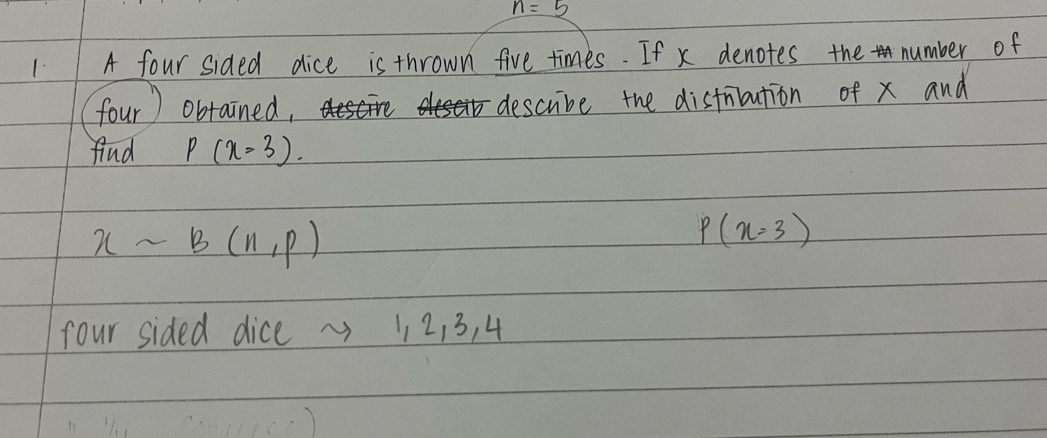 n = 5
1. A four sided dice is thrown five times. If x denotes the number of
four obtained, describe the distribution of x and
find P (x=3).
x ~ B (n,p) P(x=3)
four sided dice ⇝ 1,2,3,4